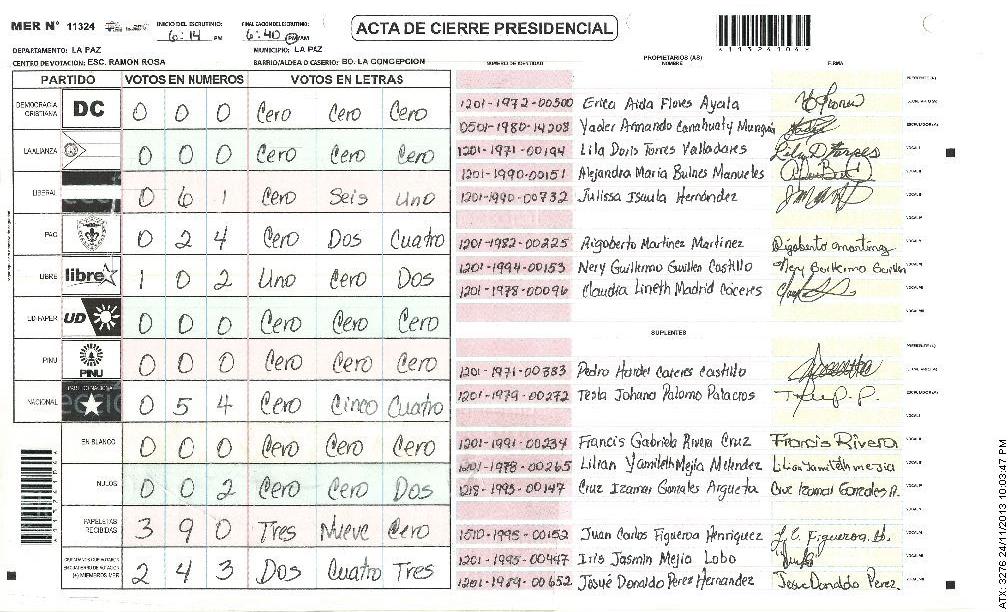 MER N° 11324
INICIO DEL ESCRUTINIO: 6:14 PM
6:40 PM
ACTA DE CIERRE PRESIDENCIAL
DEPARTAMENTO: LA PAZ
MUNICIPIO: LA PAZ
CENTRO DE VOTACIÓN: ESC. RAMON ROSA
BARRIO/ALDEA O CASERIO: BO. LA CONCEPCION
PARTIDO VOTOS EN NUMEROS VOTOS EN LETRAS
NUMERO DE IDENTIDAD
PROPIETARIOS (AS)
NOMBRE
FIRMA
DEMOCRACIA CRISTIANA DC 0 0 0 Cero Cero Cero
LA ALIANZA 0 0 0 Cero Cero Cero
LIBERAL 0 6 1 Cero Seis Uno
PAC 0 2 4 Cero Dos Cuatro
LIBRE libre 1 0 2 Uno Cero Dos
UD FAPER UD 0 0 0 Cero Cero Cero
PINU PINU 0 0 0 Cero Cero Cero
NACIONAL 0 5 4 Cero Cinco Cuatro
EN BLANCO 0 0 0 Cero Cero Cero
NULOS 0 0 2 Cero Cero Dos
PAPELETAS RECIBIDAS 3 9 0 Tres Nueve Cero
2 4 3 Dos Cuatro Tres
1201-1972-00500 Erica Aida Flores Ayala
0501-1980-14208 Yader Armando Canahuaty Munguia
1201-1971-00194 Lila Doris Torres Valladares Lila D Torres
1201-1990-00151 Alejandra Maria Bulnes Manueles
1201-1990-00732 Julissa Isaula Hernández
1201-1982-00225 Rigoberto Martinez Martinez Rigoberto Martinez
1201-1994-00153 Nery Guillermo Guillen Castillo Nery Guillermo Guillen
1201-1978-00096 Claudia Lineth Madrid Caceres
SUPLENTES
1201-1971-00383 Pedro Hardel Caceres Castillo
1201-1979-00272 Tesla Johana Palomo Palacios
1201-1991-00234 Francis Gabriela Rivera Cruz Francis Rivera
1201-1978-00265 Lilian Yamileth Mejia Melendez Lilian Yamileth mejia
1218-1995-00147 Cruz Izamar Gonzales Argueta Cruz Izamar Gonzales A.
1510-1995-00152 Juan Carlos Figueroa Henriquez J. C. Figueroa. H.
1201-1995-00447 Iris Jasmin Mejia Lobo
1201-1989-00652 Josué Donaldo Perez Hernandez Josue Donaldo Perez.
ATX: 3276 24/11/2013 10:03:47 PM